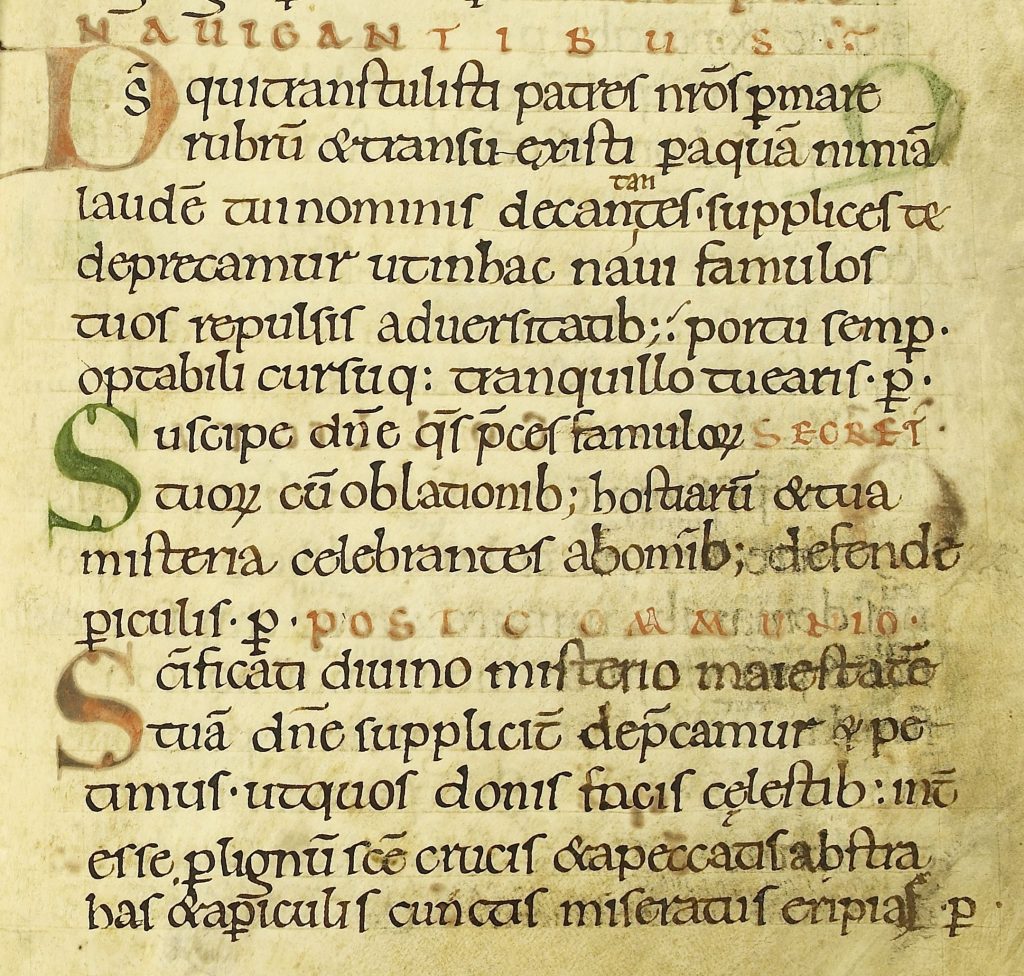 NAUIGANTIBUS
Ds̄ qui transtulisti patres nr̄os ꝑ mare
rubrū & transuexisti ꝑ aquā nimiā
laudē tui nominis decantantes · supplices te
deprecamur ut in hac naui famulos
tuos repulsis aduersitatib; portu semꝑ ·
optabili cursuq: tranquillo tuearis · ꝑ ·
Suscipe dn̄e q̄s p̄ces famuloꝝ SECRET̄ ·
tuoꝝ cū oblationib; hostiarū & tua
misteria celebrantes ab om̄ib; defende
ꝑiculis · ꝑ · POSTCOMMUNIO ·
Sc̄ificati diuino misterio maiestatē
tuā dn̄e suppliciť dep̄camur & pe
timus · ut quos donis facis cęlestib: int̄
esse ꝑ lignū scē crucis & a peccatis abstra
has & a ꝑiculis cunctis miseratus eripias · ꝑ ·